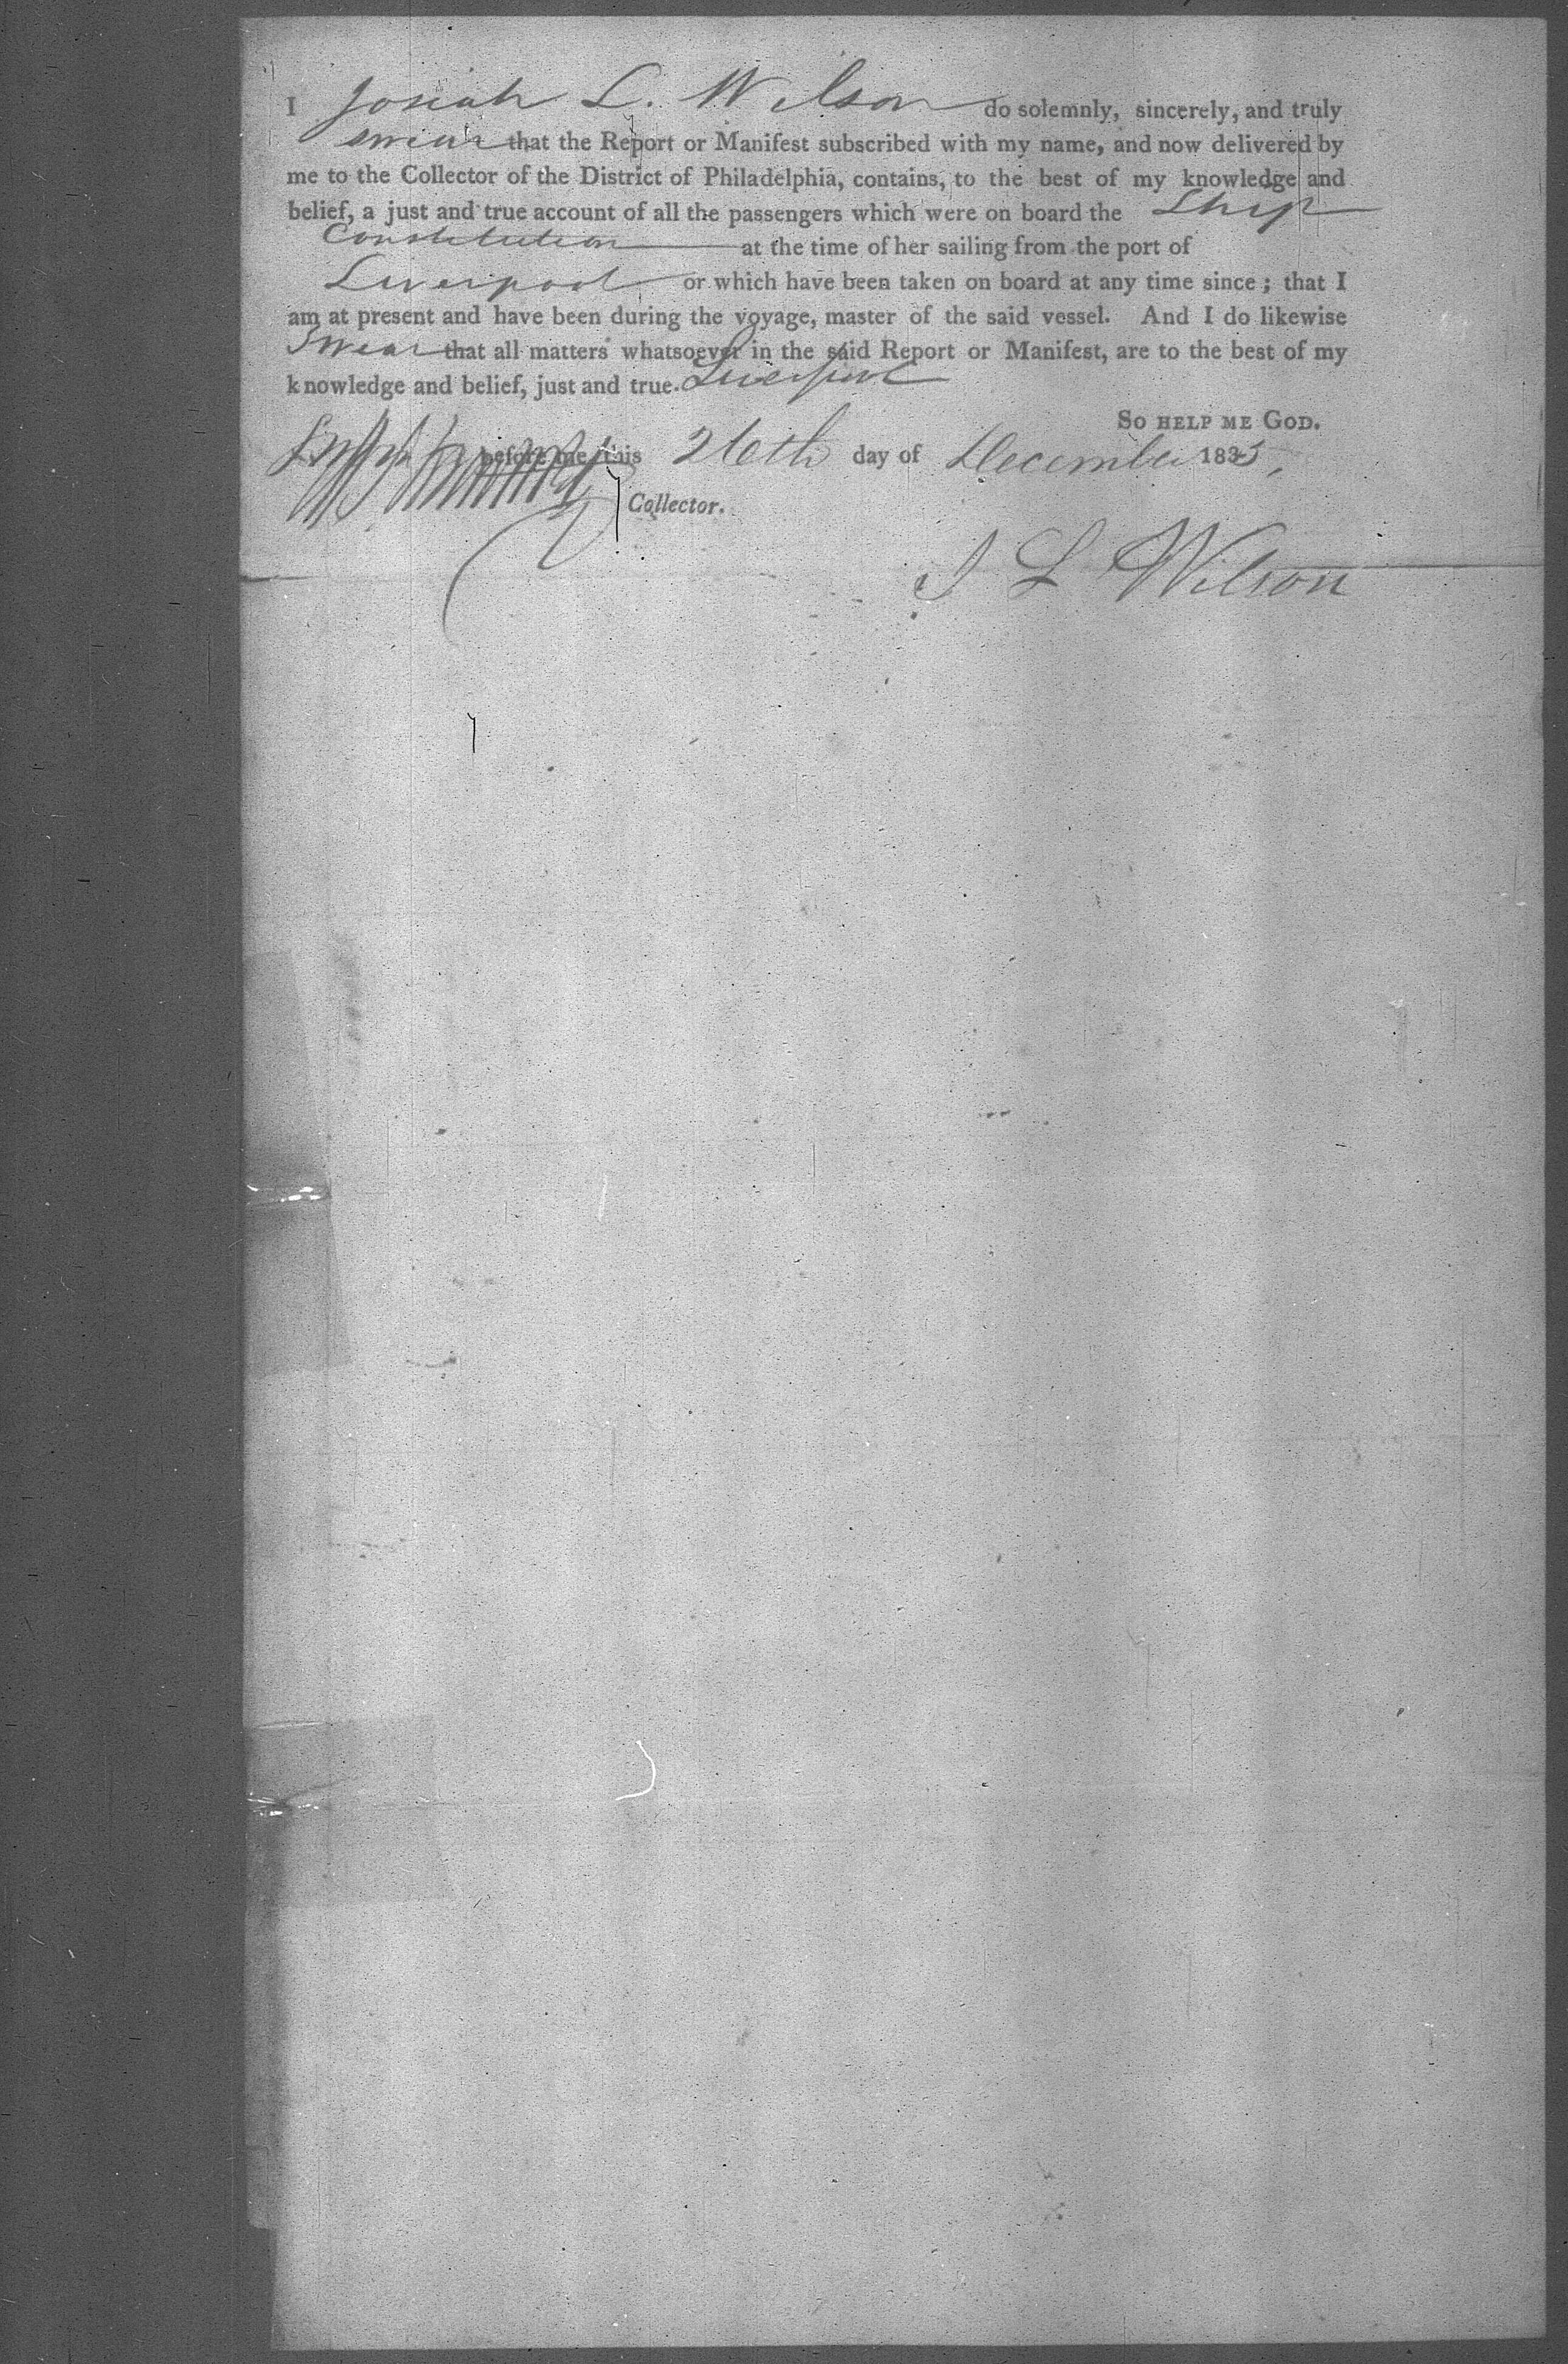 I Josiah L. Wilson do solemnly, sincerely, and truly
swear that the Report or Manifest subscribed with my name, and now delivered by
me to the Collector of the District of Philadelphia, contains, to the best of my knowledge and
belief, a just and true account of all the passengers which were on board the Ship
Constitution at the time of her sailing from the port of
Liverpool or which have been taken on board at any time since; that I
am at present and have been during the voyage, master of the said vessel. And I do likewise
Swear that all matters whatsoever in the said Report or Manifest, are to the best of my
knowledge and belief, just and true. Liverpool
So help me God.
before me this 26th day of December 1835,
Collector.
J L Wilson